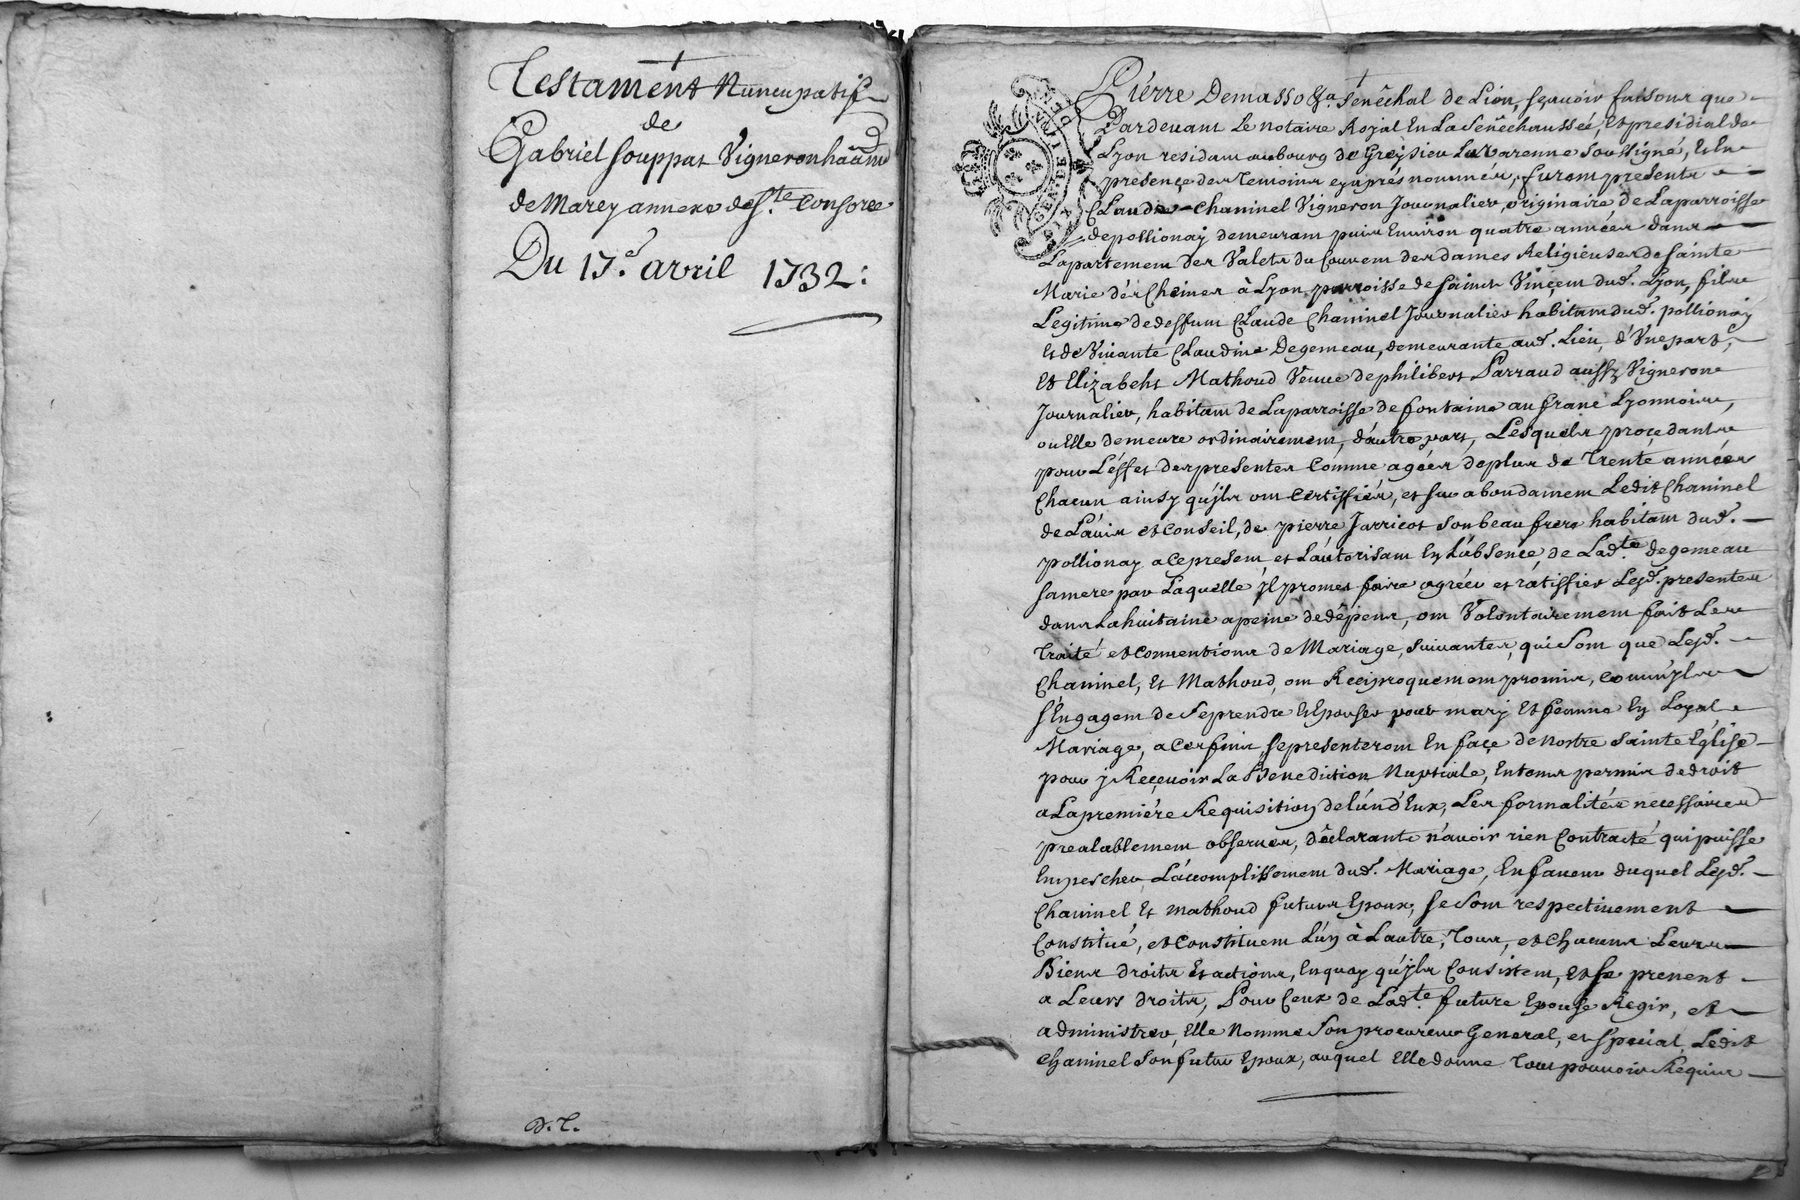 Testament Nuncupatif
de
Gabriel Souppat Vigneron habitant
de Marcy annexe de Ste Consorce
Du 17e avril 1732:
D.T.
Pierre Demasso &a. senêchal de Lion, sçavoir faisons que
Pardevant Le notaire Royal En La Senêchaussée, Et presidial de
Lyon residant au bourg de Greysieu La Varenne Soussigné, Et En
presence des Temoins cy aprés nommés, furent presents
Claude Chaninel Vigneron Journalier, originaire de La parroisse
de pollionay demeurant puis Environ quatre années dans
Lapartement des Valets du Couvent des dames Religieuses de Sainte
Marie dés Cheines à Lyon parroisse de Saint Vinçent dud. Lyon, fils
Legitime de deffunt Claude Chaninel Journalier habitant dud. pollionay
Et de Vivante Claudine Degemeau, demeurante aud. Lieu, d'Vne part,
Et Elizabeht Mathoud Veuve de philibert Parraud aussy Vigneron
Journalier, habitant de La parroisse de fontaine au franc Lyonnois,
ou Elle demeure ordinairement, d'autre part, Lesquels proçedants
pour L'éffet des presentes Comme agées de plus de Trente années
Chacun ainsy qu'jls ont Certiffiés, et sur abondament Ledit Chaninel
de L'avis et Conseil, de pierre Jarricot son beau frere habitant dud.
pollionay a Ce present et L'autorisant En L'absençe de Lade. degemeau
sa mere par Laquelle jl promet faire agréer et ratiffier Lesd. presentes
dans La huitaine a peine de dêpens, ont Volontairement fait Les
Traité et Conventions de Mariage, suivantes, qui Sont que Lesd.
Chaninel, Et Mathoud, ont Reciproquement promis, comm'jls
s'Engagent de Se prendre Et Epouser pour mary Et femme En Loyal
Mariage, a Ces fins, se presenteront En façe de Nostre Sainte Eglise
pour y Reçevoir La Benediction Nuptiale, En tems permis de droit
a La premiére Requisition de L'un d'Eux, Les formalités necessaires
prealablement observées, dêclarants n'avoir rien Contracté qui puisse
Empescher L'accomplissement dud. Mariage, En faveur duquel Lesd.
Chaninel Et Mathoud futurs Epoux, se Sont respectivement
Constitué, et Constituent L'un à L'autre, Tous, et Chacuns Leurs
Biens droits Et actions, En quoy qu'jls Consistent, Et se prenent
a Leurs droits, Pour Ceux de Lade. future Epouse Regir, et
administrer, Elle Nomme Son procureur General, et Special Ledit
Chaninel Son futur Epoux, auquel Elle donne Tout pouvoir Requis